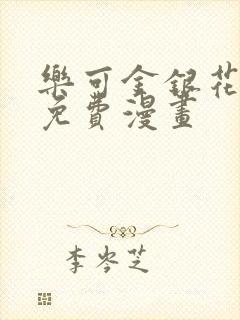 樂可金銀花
免費漫畫
李岑芝